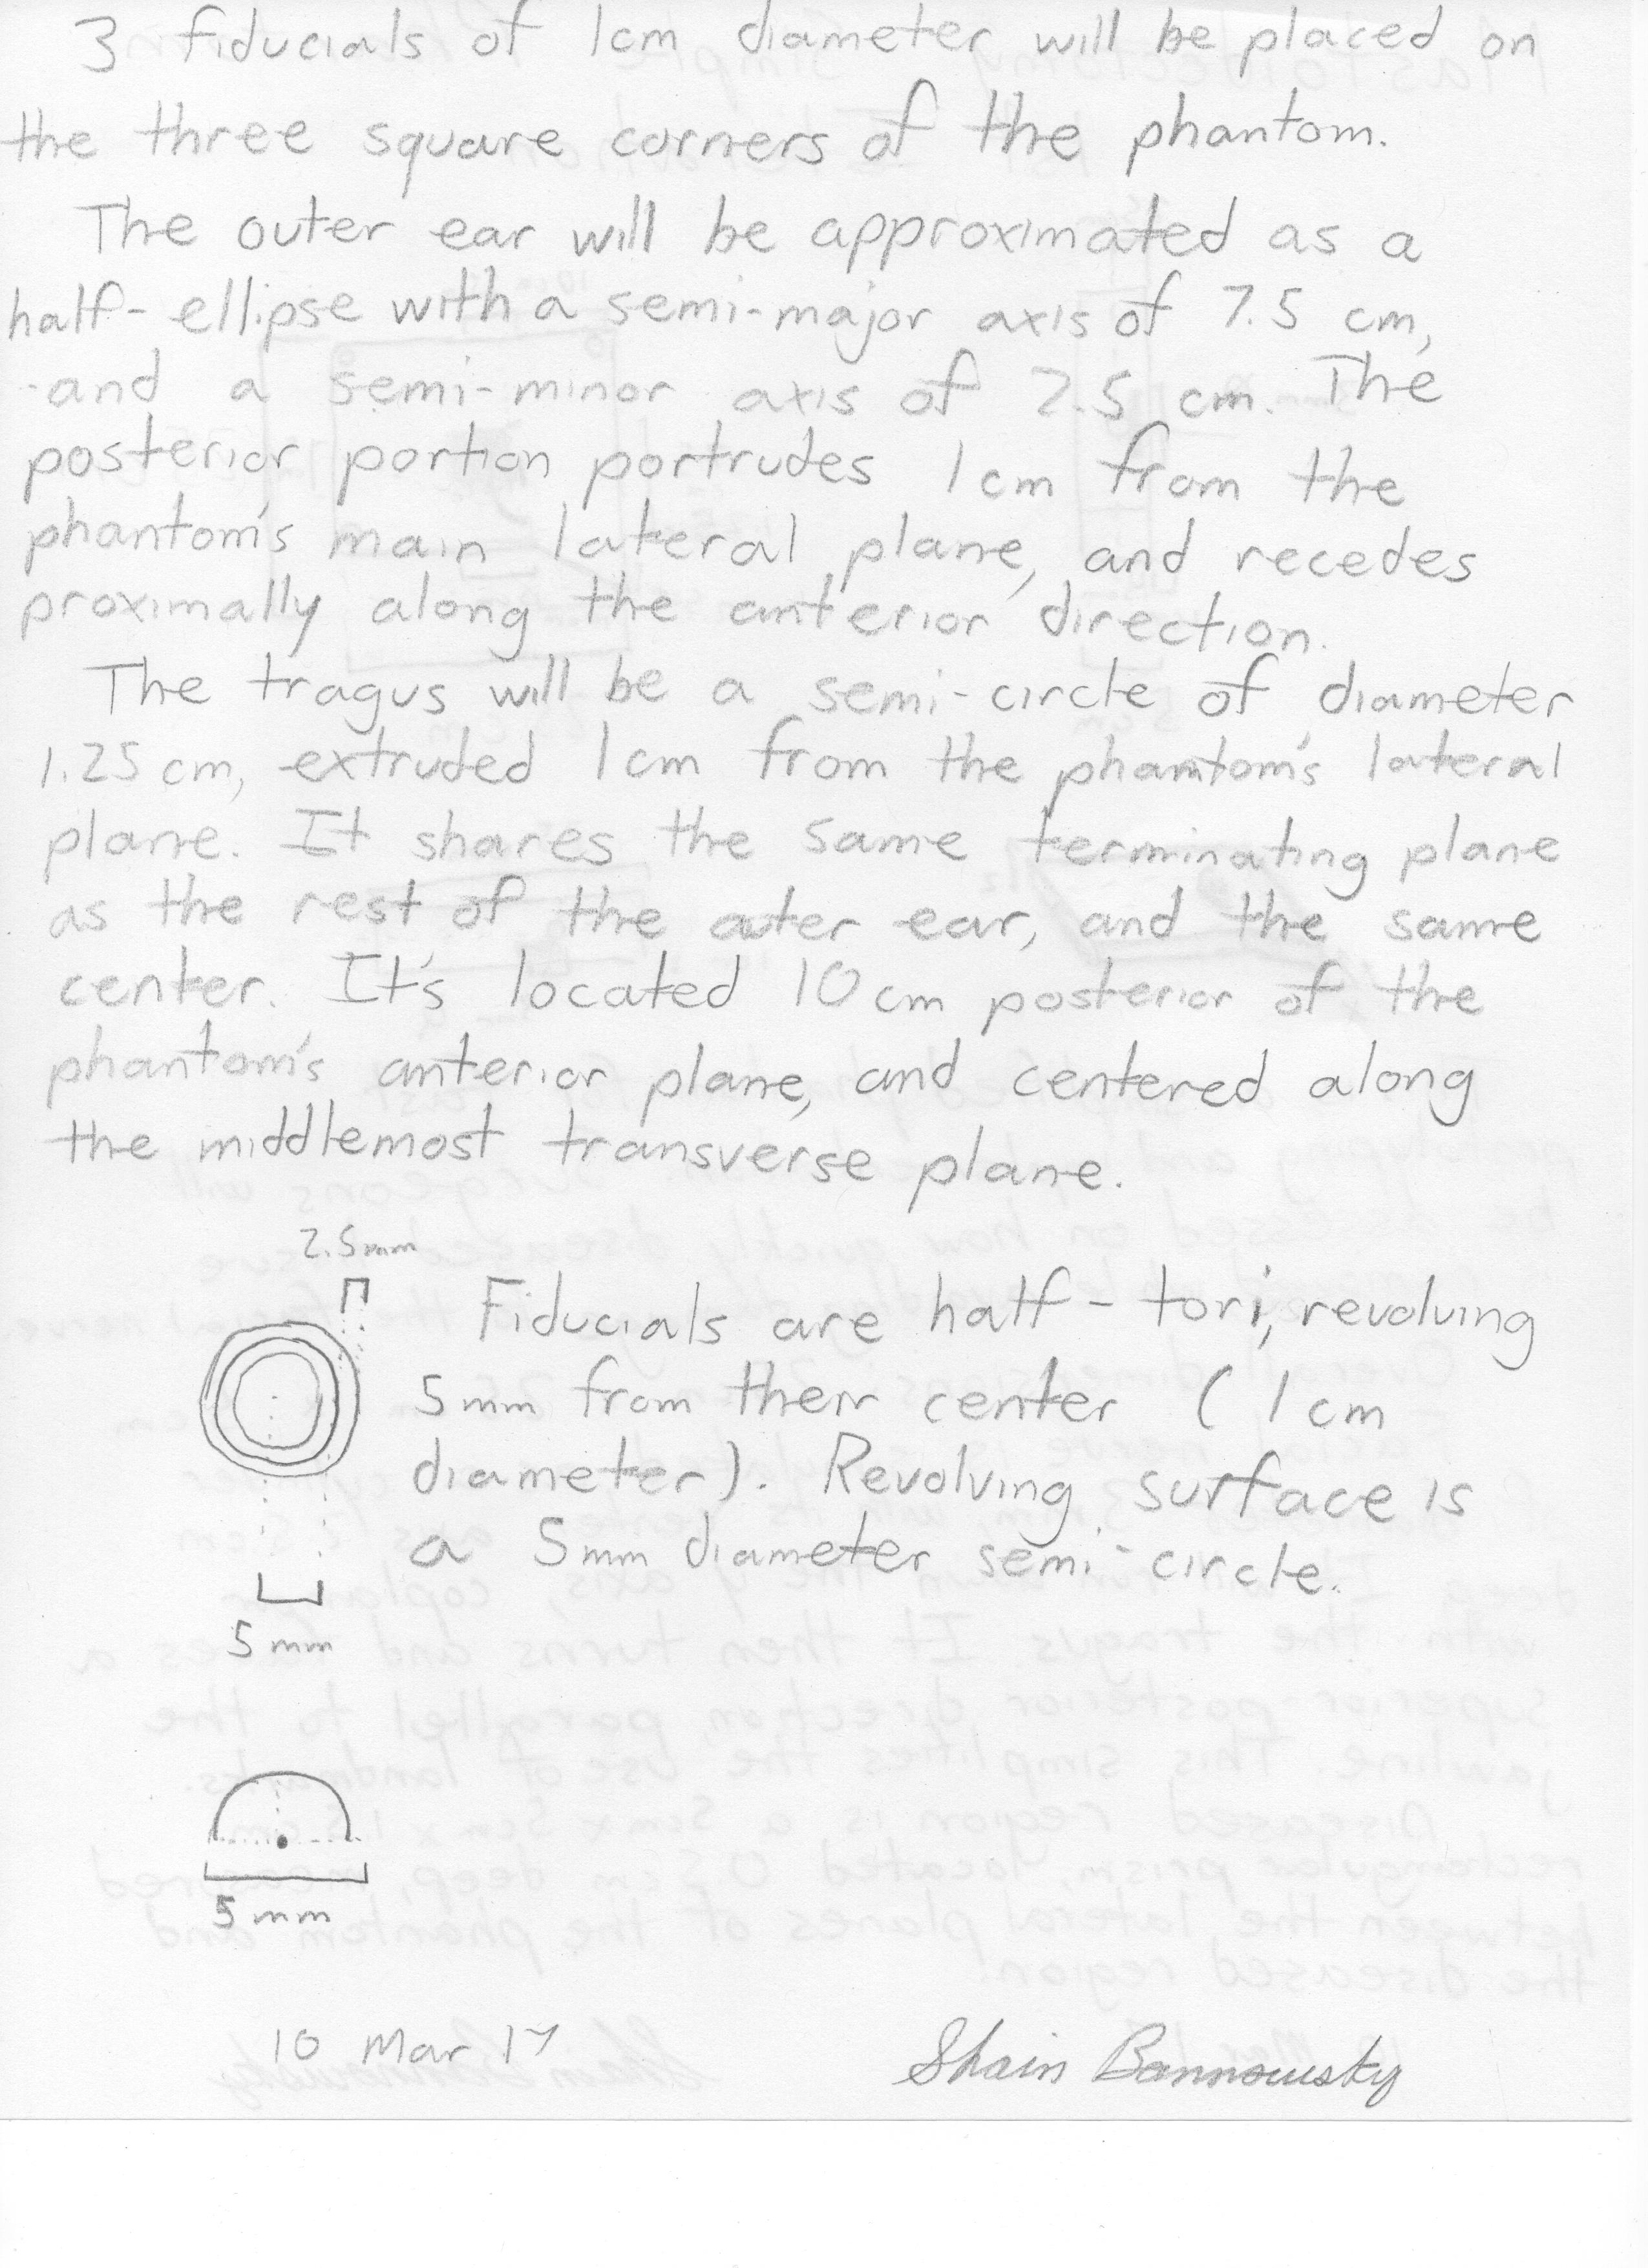 3 fiducials of 1cm diameter will be placed on
the three square corners of the phantom.
The outer ear will be approximated as a
half-ellipse with a semi-major axis of 7.5 cm,
and a semi-minor axis of 2.5 cm. The
posterior portion portrudes 1cm from the
phantom's main lateral plane, and recedes
proximally along the anterior direction.
The tragus will be a semi-circle of diameter
1.25 cm, extruded 1cm from the phantom's lateral
plane. It shares the same terminating plane
as the rest of the outer ear, and the same
center. It's located 10 cm posterior of the
phantom's anterior plane, and centered along
the middlemost transverse plane.
2.5mm
Fiducials are half-tori, revolving
5mm from their center (1cm
diameter). Revolving surface is
a 5mm diameter semi-circle.
5 mm
5 mm
10 Mar 17
Shain Bannowsky